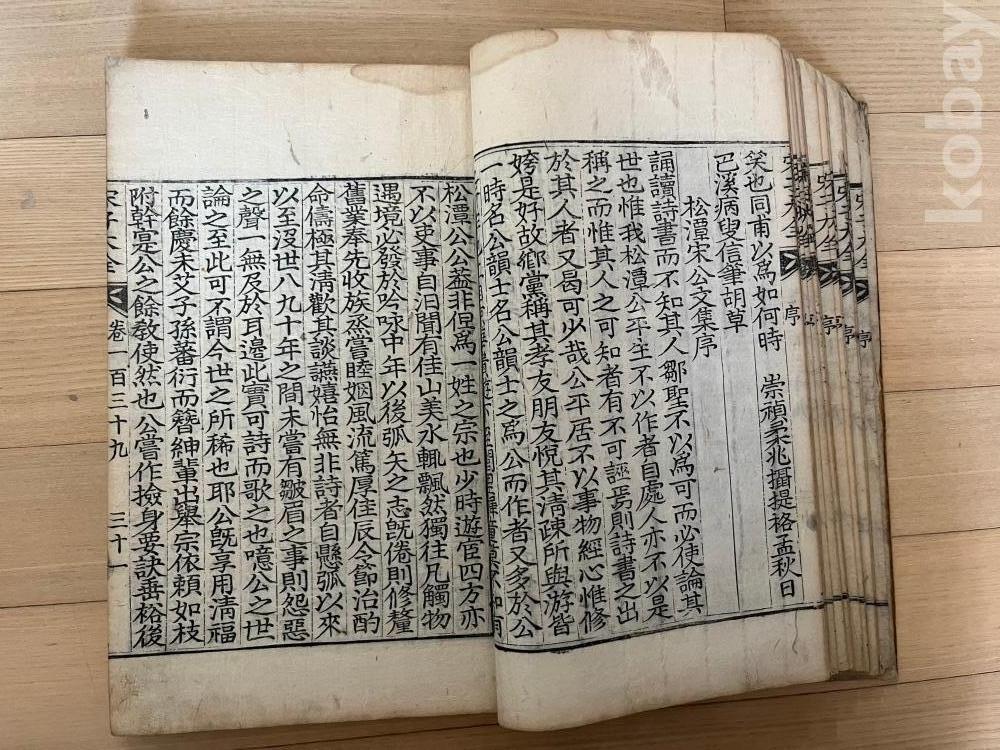 笑也同甫以爲如何時 崇禎柔兆攝提格孟秋日
巴溪病叟信筆胡草
松潭宋公文集序
誦讀詩書而不知其人鄒聖不以爲可而必使論其
世也惟我松潭公平生不以作者自處人亦不以是
稱之而惟其人之可知者有不可誣焉則詩書之出
於其人者又曷可少哉公平居不以事物經心惟修
姱是好故鄉黨稱其孝友朋友悅其淸疎所與游皆
一時名公韻士名公韻士之爲公而作者又多於公
松潭公公蓋非但爲一姓之宗也少時遊宦四方亦
不以吏事自汩聞有佳山美水輒飄然獨往凡觸物
遇境必發於吟咏中年以後弧矢之志旣倦則修釐
舊業奉先收族烝嘗睦婣風流篤厚佳辰令節治酌
命儔極其淸歡其談讌嬉怡無非詩者自懸弧以來
以至沒世八九十年之間未嘗有皺眉之事則怨惡
之聲一無及於耳邊此實可詩而歌之也噫公之世
論之至此可不謂今世之所稀也耶公旣享用淸福
而餘慶未艾子孫蕃衍而簪紳輩出擧宗依賴如枝
附幹寔公之餘敎使然也公嘗作撿身要訣垂裕後
宋子大全 卷一百三十九 三十一
kobay